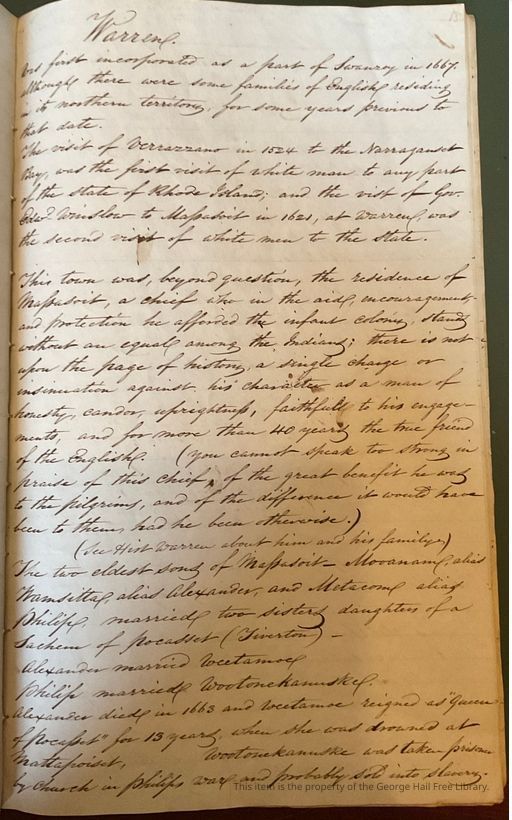 Warren.
Was first incorporated as a part of Swanzey in 1667,
although there were some families of English residing
in its northern territory, for some years previous to
that date.
The visit of Verrazzano in 1524 to the Narraganset
Bay, was the first visit of white man to any part
of the state of Rhode Island; and the visit of Gov.
Edwd Winslow to Massasoit in 1621, at Warren, was
the second visit of white men to the State.
This town was, beyond question, the residence of
Massasoit, a chief who in the aid, encouragement
and protection he afforded the infant colony, stands
without an equal among the Indians; there is not
upon the page of history, a single charge or
insinuation against his character as a man of
honesty, candor, uprightness, faithfull to his engage-
ments, and for more than 40 years the true friend
of the English. (you cannot speak too strong in
praise of this chief, of the great benefit he was
to the pilgrims, and of the difference it would have
been to them, had he been otherwise.)
(See Hist Warren about him and his family)
The two eldest sons of Massasoit - Mooanam, alias
Wamsitta, alias Alexander, and Metacom alias
Philip, married two sisters daughters of a
Sachem of Pocasset (Tiverton) -
Alexander married Weetamoe
Philip married Wootonekanuske.
Alexander died in 1663 and Weetamoe reigned as "Queen
of Pocasset" for 13 years, when she was drowned at
Mattapoiset, Wootonekanuske was taken prisoner
by Church in Philips war and probably sold into slavery.
This item is the property of the George Hail Free Library.